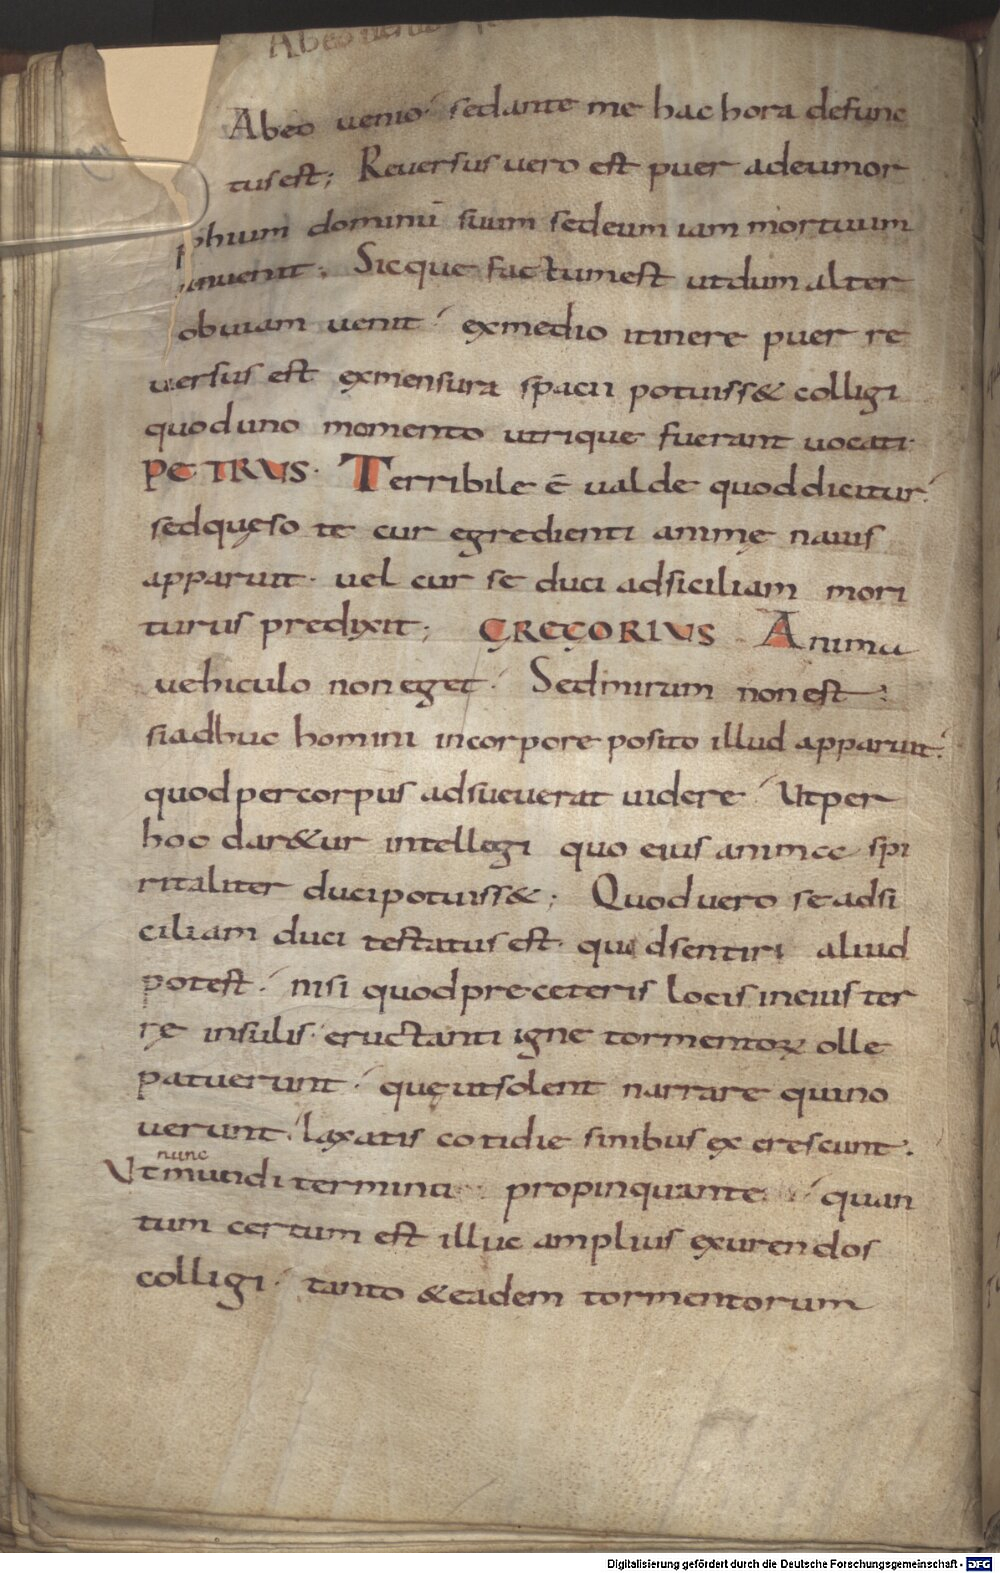 Abeo uenio
Abeo uenio sedante me hac hora defunc
tusest; Reuersusuero est puer adeumor
phium dominū suum sedeum iam mortuum
inuenit; Sicque factumest utdum alter
obuiam uenit exmedio itinere puer re
uersus est exmensura spacii potuiss& colligi
quoduno momento utrique fuerant uocati.
PETRUS. Terribile ē ualde quoddicitur
sedquęso te cur egredienti animę nauis
apparuit. uel cur se duci adsiciliam mori
turus predixit; GREGORIUS Anima
uehiculo noneget. Sedmirum nonest
siadhuc homini incorpore posito illud apparuit
quodpercorpus adsueuerat uidere Utper
hoc dar&ur intellegi quo eius animae spi
ritaliter ducipotuiss&; Quoduero seadsi
ciliam duci testatusest. quidsentiri aliud
potest. nisi quodpreceteris locisineiuster
rę insulis eructanti igne tormentoꝝ olle
patuerunt queutsolent narrare quino
uerunt laxatis cotidie sinibus excrescunt.
nunc
Utmundi termino propinquante quan
tum certum est illuc amplius exurendos
colligi tanto &eadem tormentorum
Digitalisierung gefördert durch die Deutsche Forschungsgemeinschaft - DFG